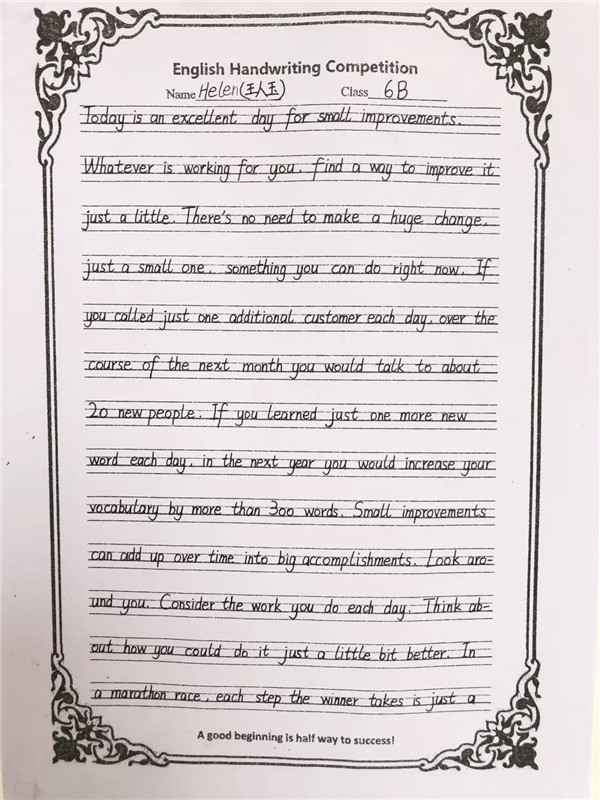 English Handwriting Competition
Name Helen(王人玉) Class 6B
Today is an excellent day for small improvements.
Whatever is working for you, find a way to improve it
just a little. There's no need to make a huge change,
just a small one, something you can do right now. If
you called just one additional customer each day, over the
course of the next month you would talk to about
20 new people. If you learned just one more new
word each day, in the next year you would increase your
vocabulary by more than 300 words. Small improvements
can add up over time into big accomplishments. Look aro-
und you. Consider the work you do each day. Think ab-
out how you could do it just a little bit better. In
a marathon race, each step the winner takes is just a
A good beginning is half way to success!